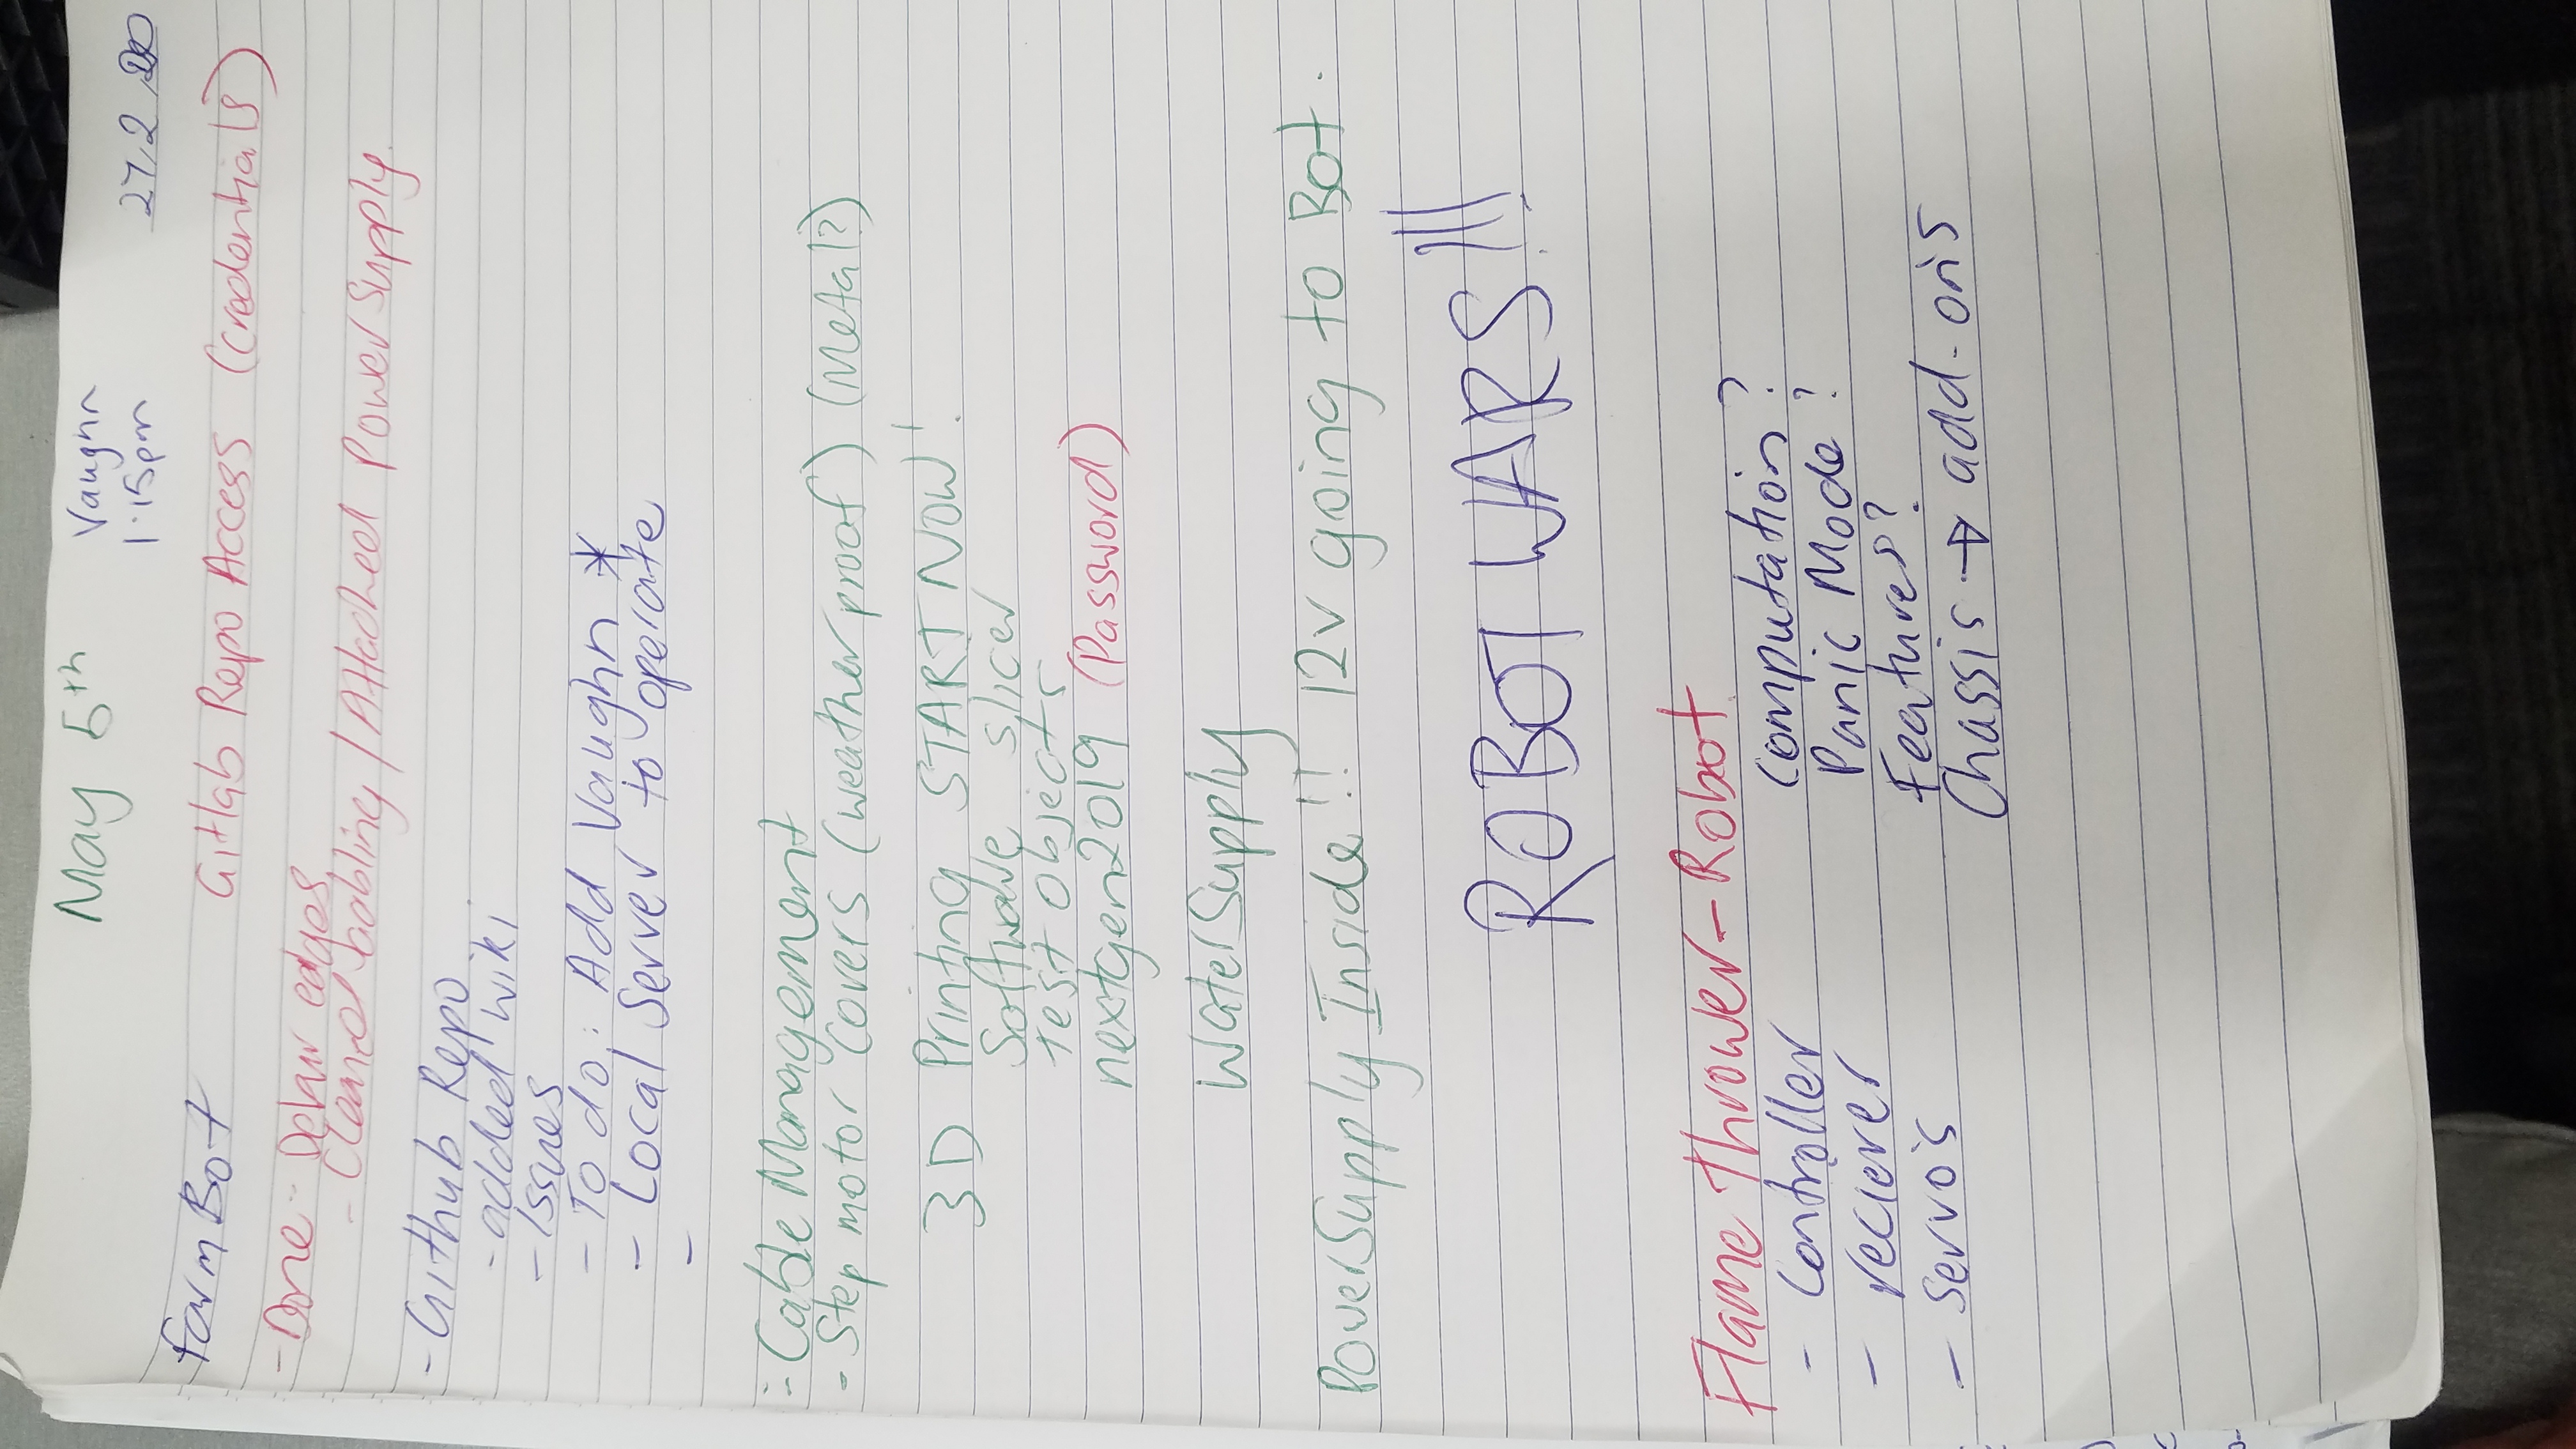 May 5th
Vaughn
1:15pm
27.2.20
farmBot
Gitlab Repo Access (credentials)
- Done - Debur edges,
- Cleaned cabling / Attached Power Supply.
- Github Repo
- added wiki
- Issues
- To do: Add Vaughn *
- Local Server to operate
-
- Cable Management
- Step motor covers (weather proof) (Metal?)
3D Printing START NOW!
Software slicer
Test Objects
nextgen2019 (Password)
Water Supply
Power Supply Inside!! 12v going to Bot.
ROBOT WARS!!!
Flame thrower - Robot
- Controller
- reciever
- servo's
Computation?
Panic Mode?
Features?
Chassis → add-on's